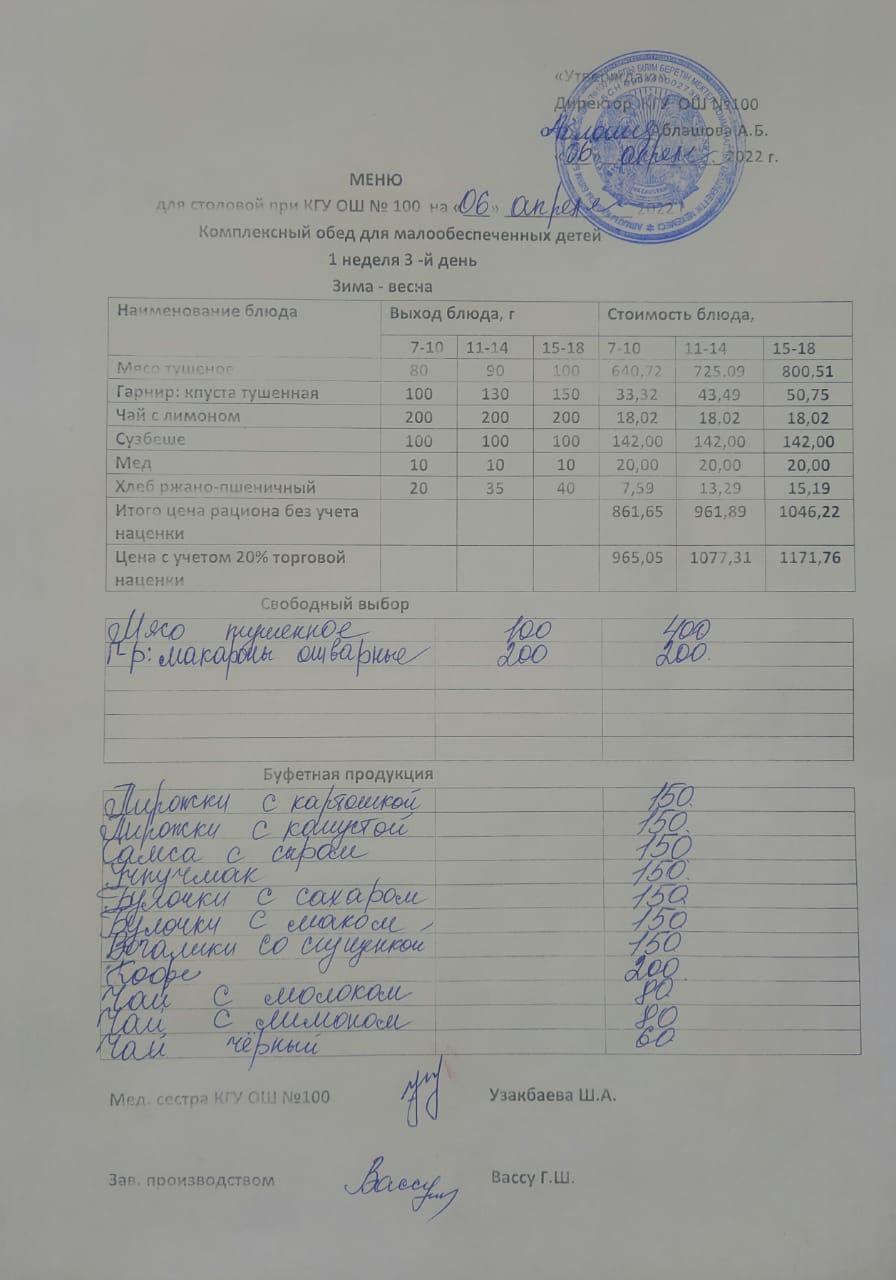 «Утверждаю»
Директор КГУ ОШ №100
Аблашова А.Б.
«06» апреля 2022 г.
МЕНЮ
для столовой при КГУ ОШ № 100 на «06» апреля 2022 г
Комплексный обед для малообеспеченных детей
1 неделя 3 -й день
Зима - весна
Наименование блюда Выход блюда, г Стоимость блюда,
7-10 11-14 15-18 7-10 11-14 15-18
Мясо тушеное 80 90 100 640,72 725,09 800,51
Гарнир: кпуста тушенная 100 130 150 33,32 43,49 50,75
Чай с лимоном 200 200 200 18,02 18,02 18,02
Сузбеше 100 100 100 142,00 142,00 142,00
Мед 10 10 10 20,00 20,00 20,00
Хлеб ржано-пшеничный 20 35 40 7,59 13,29 15,19
Итого цена рациона без учета
наценки 861,65 961,89 1046,22
Цена с учетом 20% торговой
наценки 965,05 1077,31 1171,76
Свободный выбор
Мясо тушенное 100 400
Г-р: макароны отварные 200 200.
Буфетная продукция
Пирожки с картошкой 150.
Пирожки с капустой 150.
Самса с сыром 150
Учпучмак 150.
Булочки с сахаром 150
Булочки с маком 150
Рогалики со сгущенкой 150
Кофе 200.
Чай с молоком 80
Чай с лимоном 80
Чай чёрный 60
Мед. сестра КГУ ОШ №100 Узакбаева Ш.А.
Зав. производством Вассу Вассу Г.Ш.